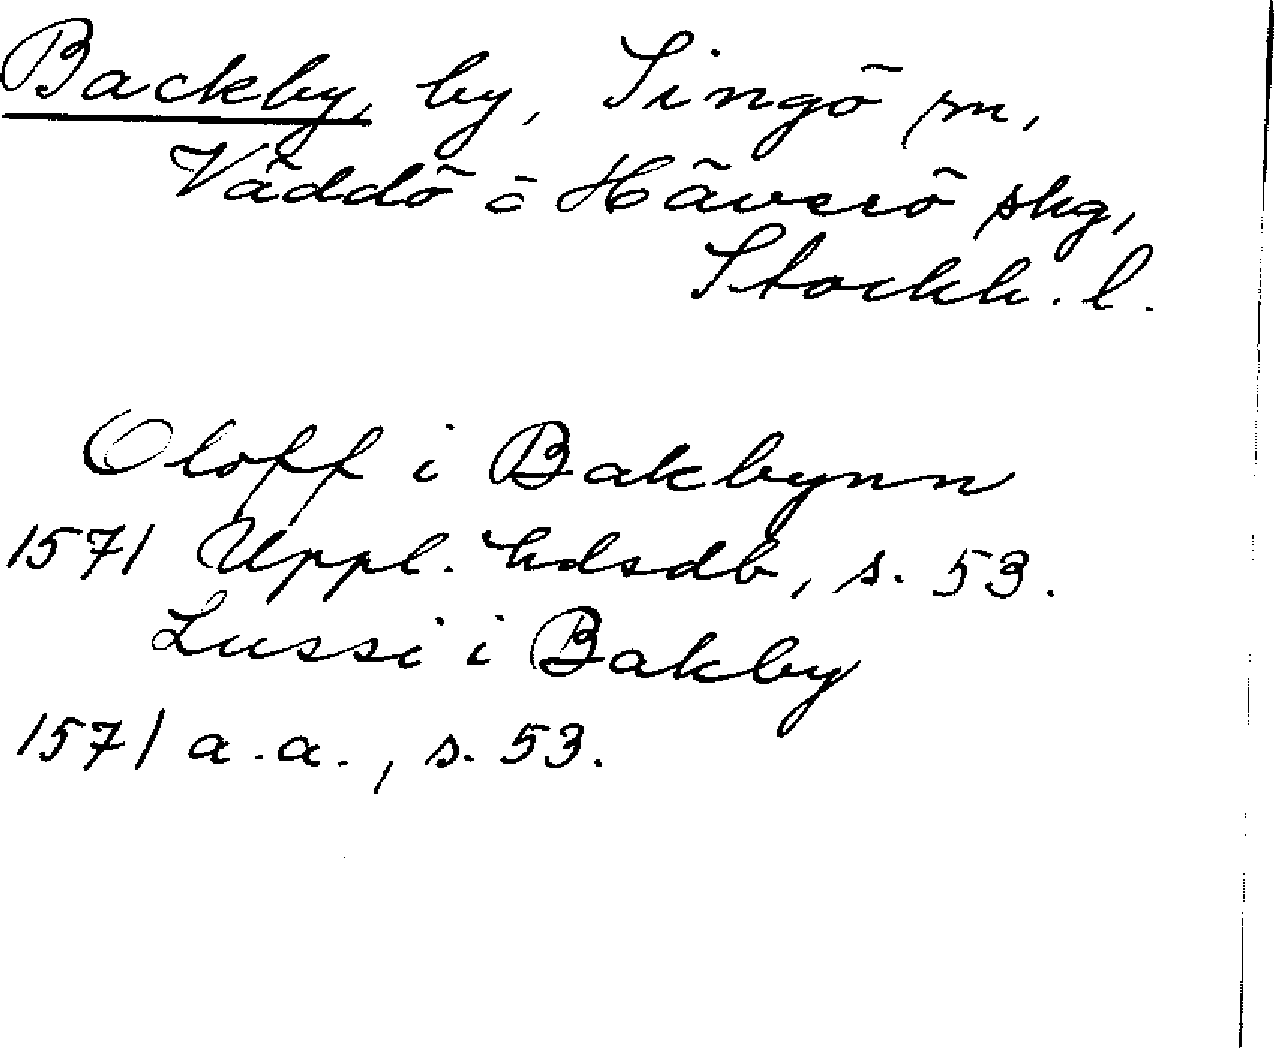 Backby, by, Singö sn,
Väddö o Häverö skg,
Stockh. l.
Oloff i Bakbynn
1571 Uppl. hdsdb, s. 53.
Lussi i Bakby
1571 a.a., s. 53.